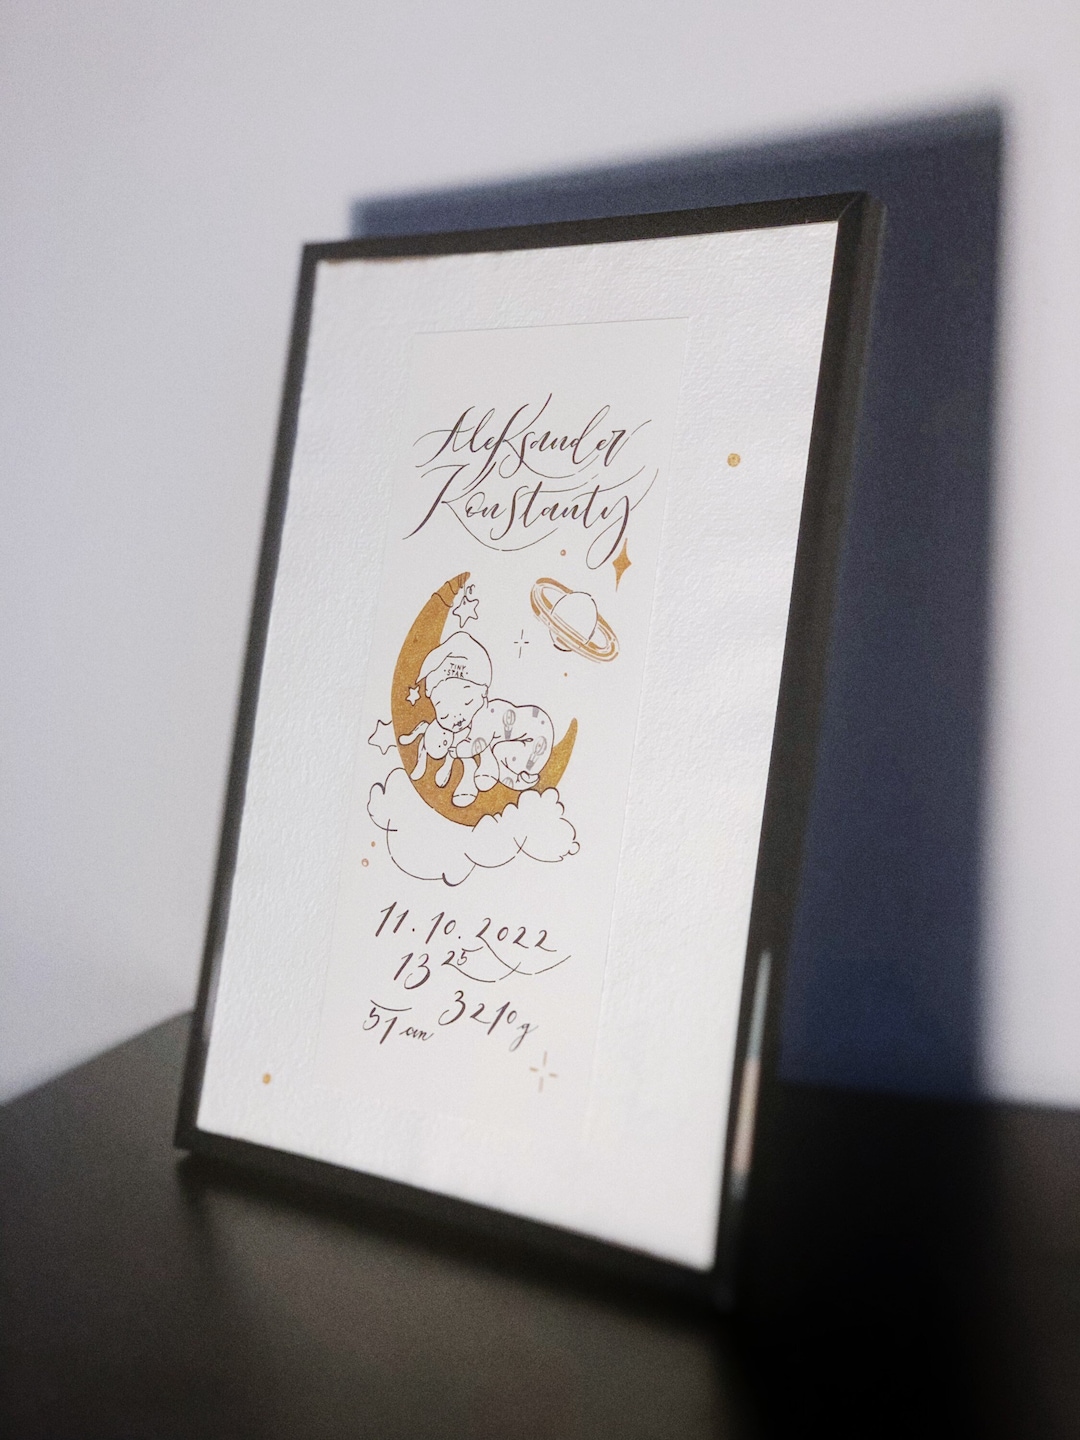 Aleksander
Konstanty
TINY
STAR
11.10.2022
13 25
51 cm 3210g